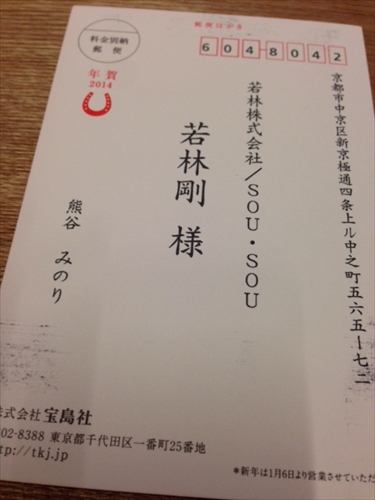 郵便はがき
料金別納
郵便
6048042
年賀
2014
京都市中京区新京極通四条上ル中之町五六五ー七二
若林株式会社/SOU・SOU
若林剛 様
熊谷 みのり
式会社 宝島社
02-8388 東京都千代田区一番町25番地
tp://tkj.jp
*新年は1月6日より営業させていただ